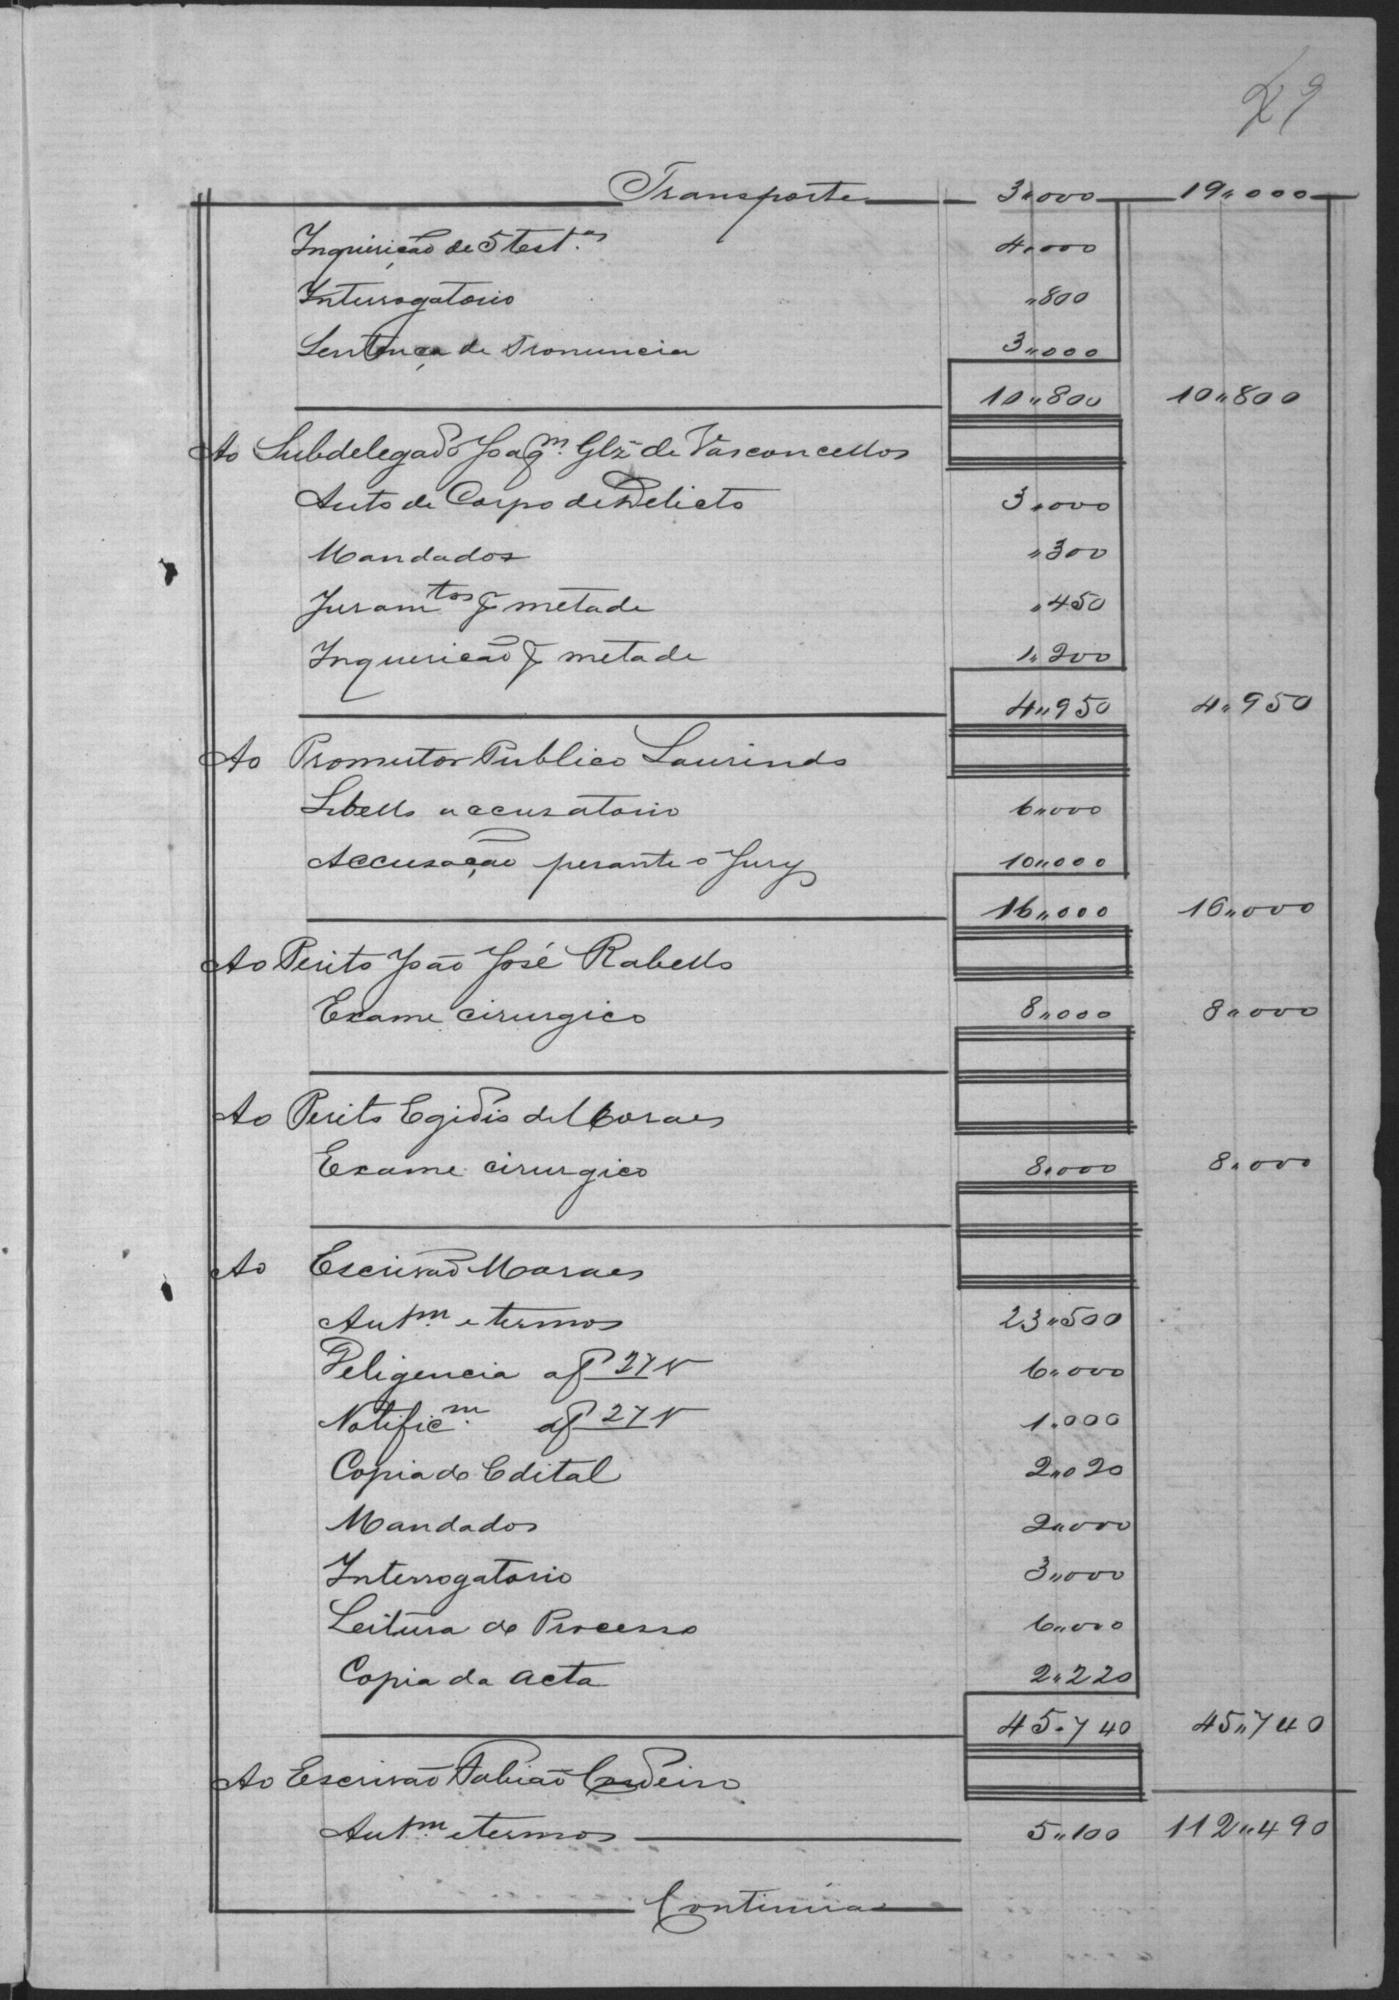 29
Transporte 3,,000 19,,000
Inquirição de 5 test.as 4,,000
Interrogatorio ,,800
Sentença de Pronuncia 3,,000
10,,800 10,,800
Ao Subdelegado Joaqm. Glz de Vasconcellos
Auto de Corpo de Delicto 3,,000
Mandados ,,300
Juramtos metade ,,450
Inquericão metade 1,,200
4,,950 4,,950
Ao Promutor Publico Laurindo
Libello accusatorio 6,,000
Accusação perante o Jury 10,,000
16,,000 16,,000
Ao Perito João José Rabello
Exame cirurgico 8,,000 8,,000
Ao Perito Egidio de Moraes
Exame cirurgico 8,,000 8,,000
Ao Escrivão Moraes
Autm. e termos 23,,500
Deligencia af 27 v 6,,000
Notificm. af 27 v 1.000
Copia do Edital 2,,020
Mandados 2,,000
Interrogatorio 3,,000
Leitura do Processo 6,,000
Copia da acta 2,,220
45.740 45,,740
Ao Escrivão Fabião Cordeiro
Autm. e termos 5,,100 112,,490
Continúa